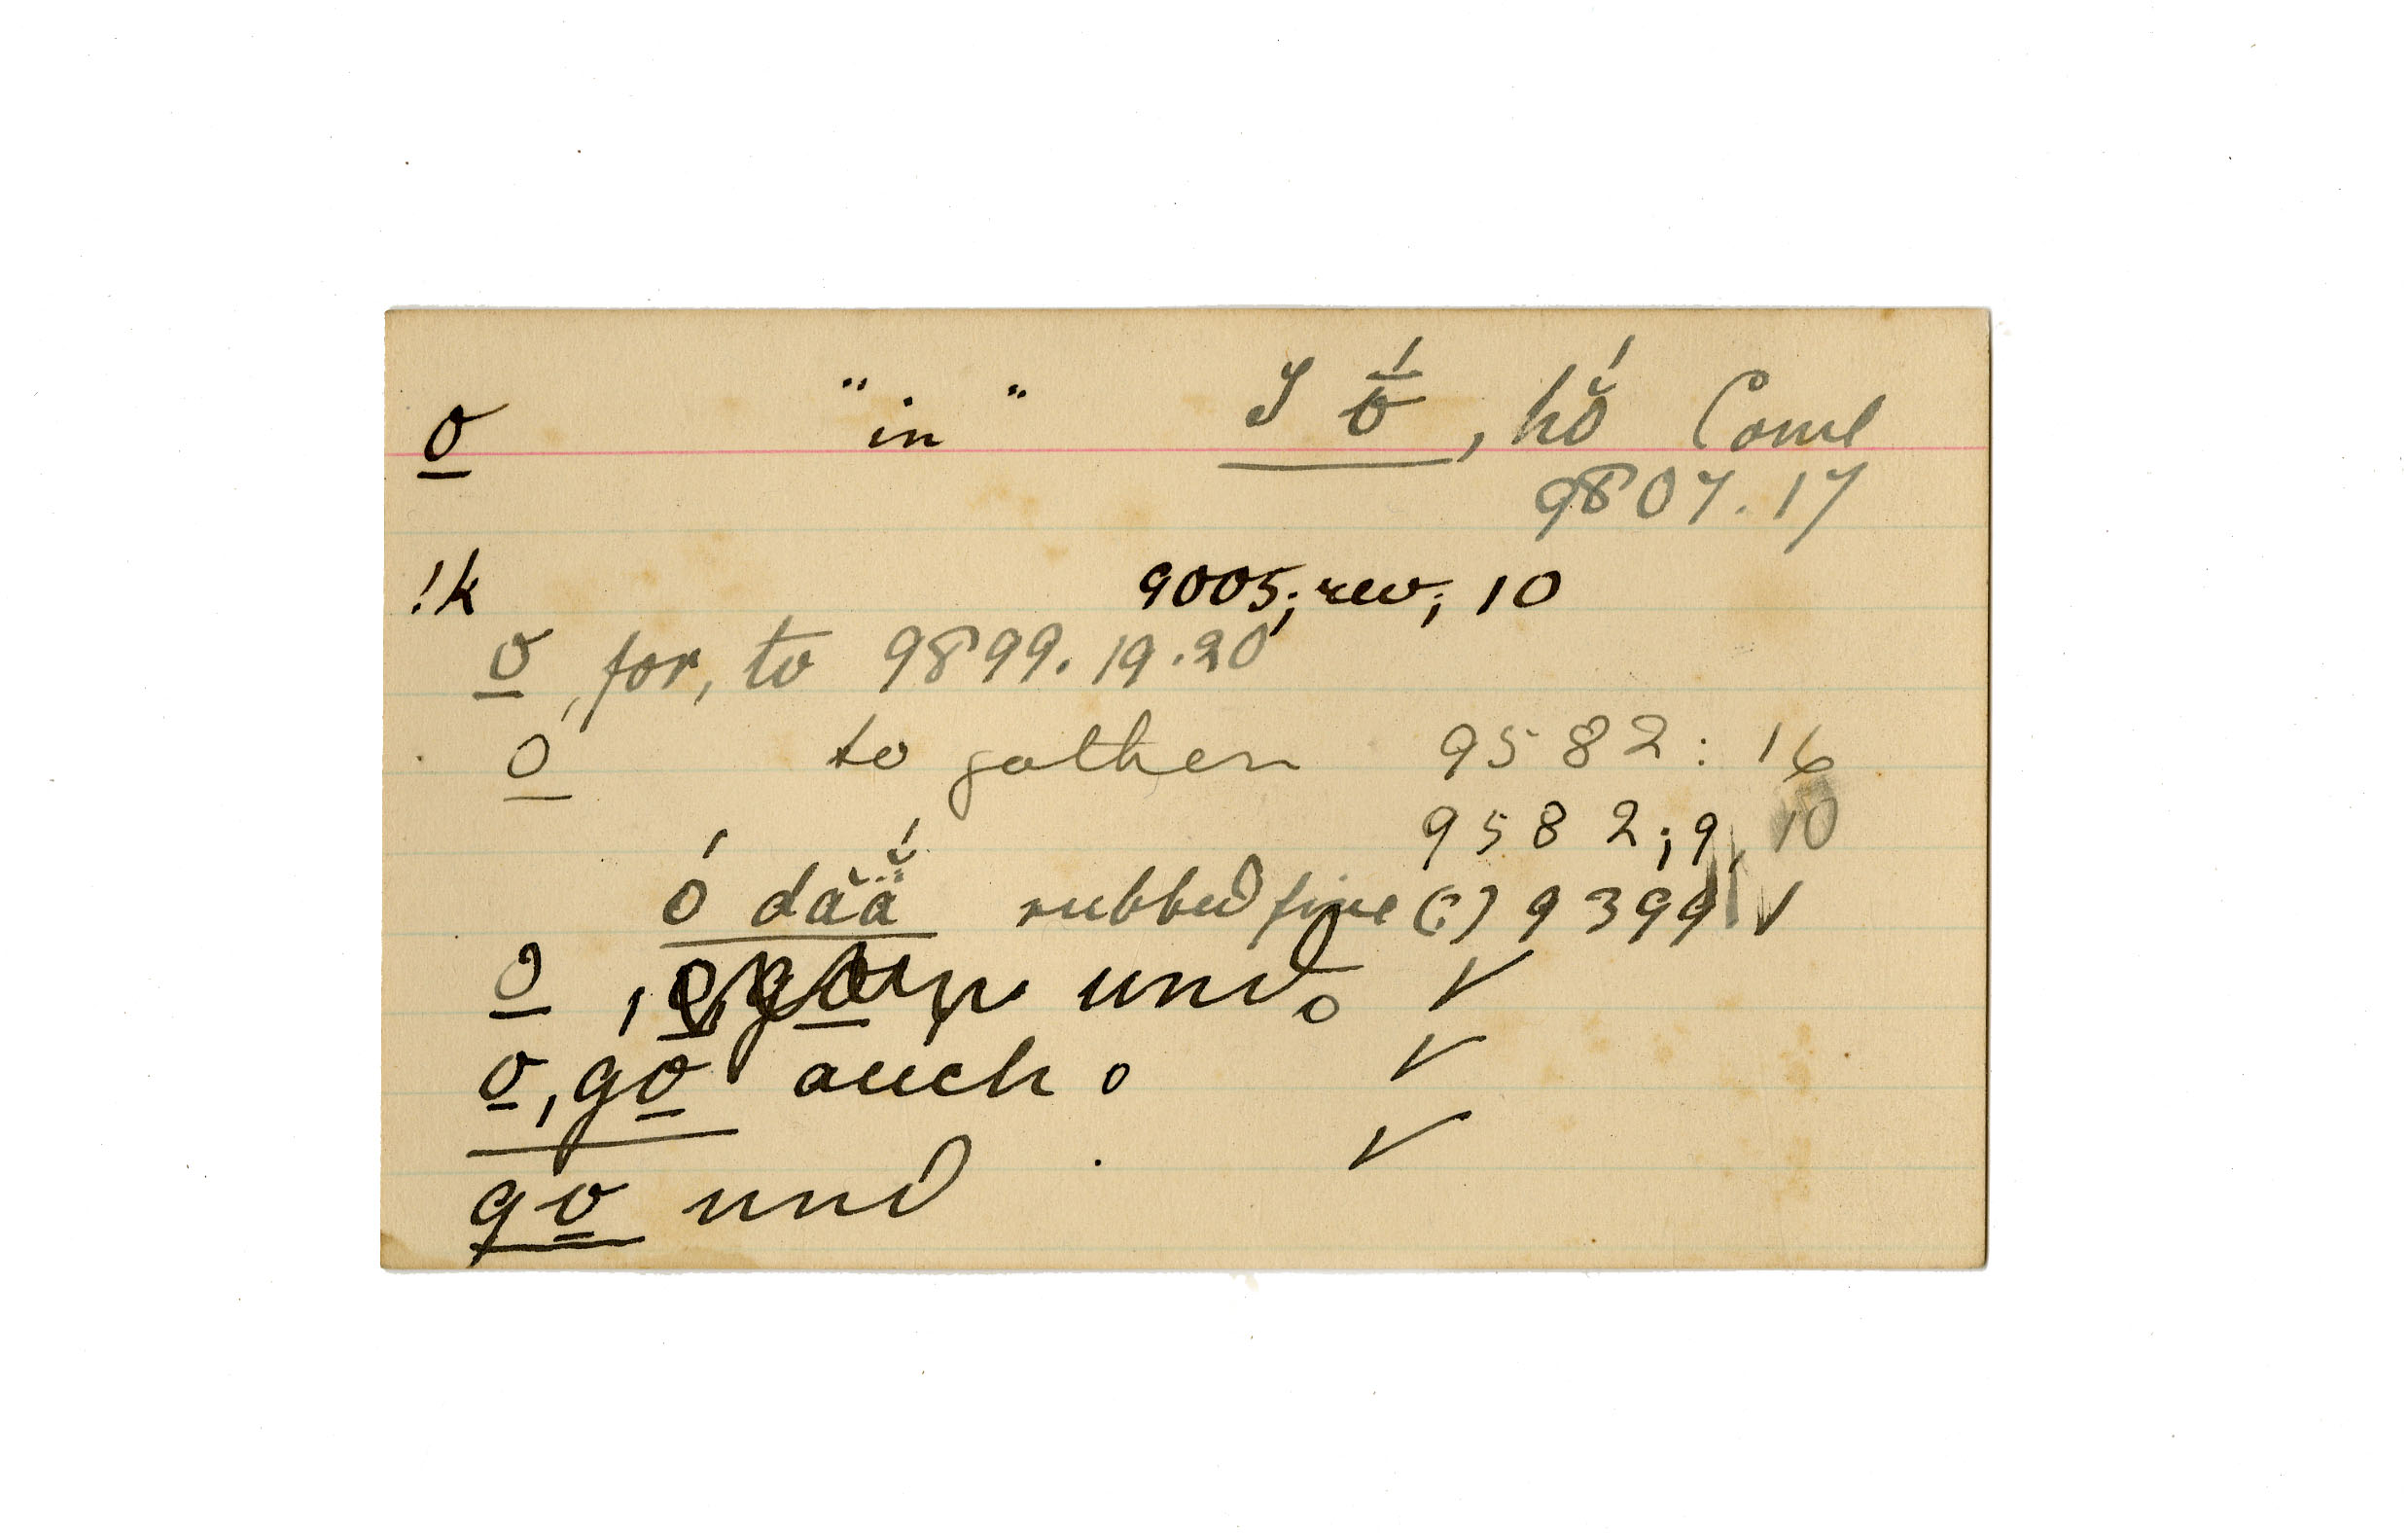 o̱ "in" I ṓ, hŏ́ Come
9807.17
!k 9005; rev; 10
o̱, for, to 9899.19.20
o̱ to gather 9582: 16
9582; 9, 10
ó dăä̆́ rubbed fine (?) 9399 ✓
o̱, und. ✓
o̱, go̱ auch. ✓
go̱ und ✓